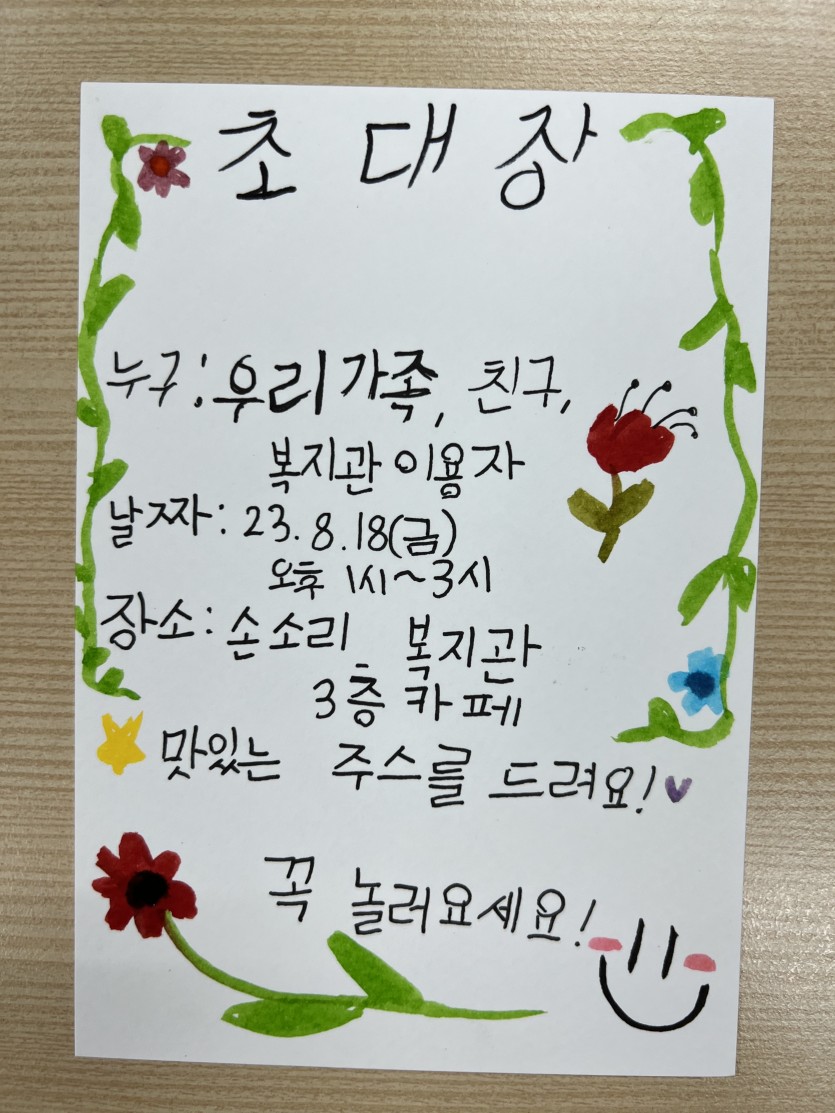 초대장
누구: 우리가족, 친구,
복지관 이용자
날짜: 23.8.18(금)
오후 1시~3시
장소: 손소리 복지관
3층 카페
맛있는 주스를 드려요!
꼭 놀러요세요!